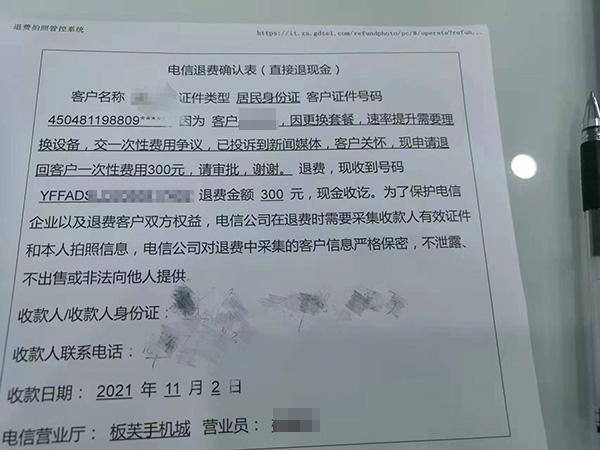 退费拍照管控系统
https://it.za.gdtel.com/refundphoto/pc/W/operate?refun...
电信退费确认表（直接退现金）
客户名称 证件类型 居民身份证 客户证件号码
450481198809**** 因为 客户 ，因更换套餐，速率提升需要理
换设备，交一次性费用争议，已投诉到新闻媒体，客户关怀，现申请退
回客户一次性费用300元，请审批，谢谢。 退费，现收到号码
YFFADS 退费金额 300 元，现金收讫。为了保护电信
企业以及退费客户双方权益，电信公司在退费时需要采集收款人有效证件
和本人拍照信息，电信公司对退费中采集的客户信息严格保密，不泄露、
不出售或非法向他人提供。
收款人/收款人身份证：
收款人联系电话：
收款日期： 2021 年 11 月 2 日
电信营业厅： 板芙手机城 营业员：